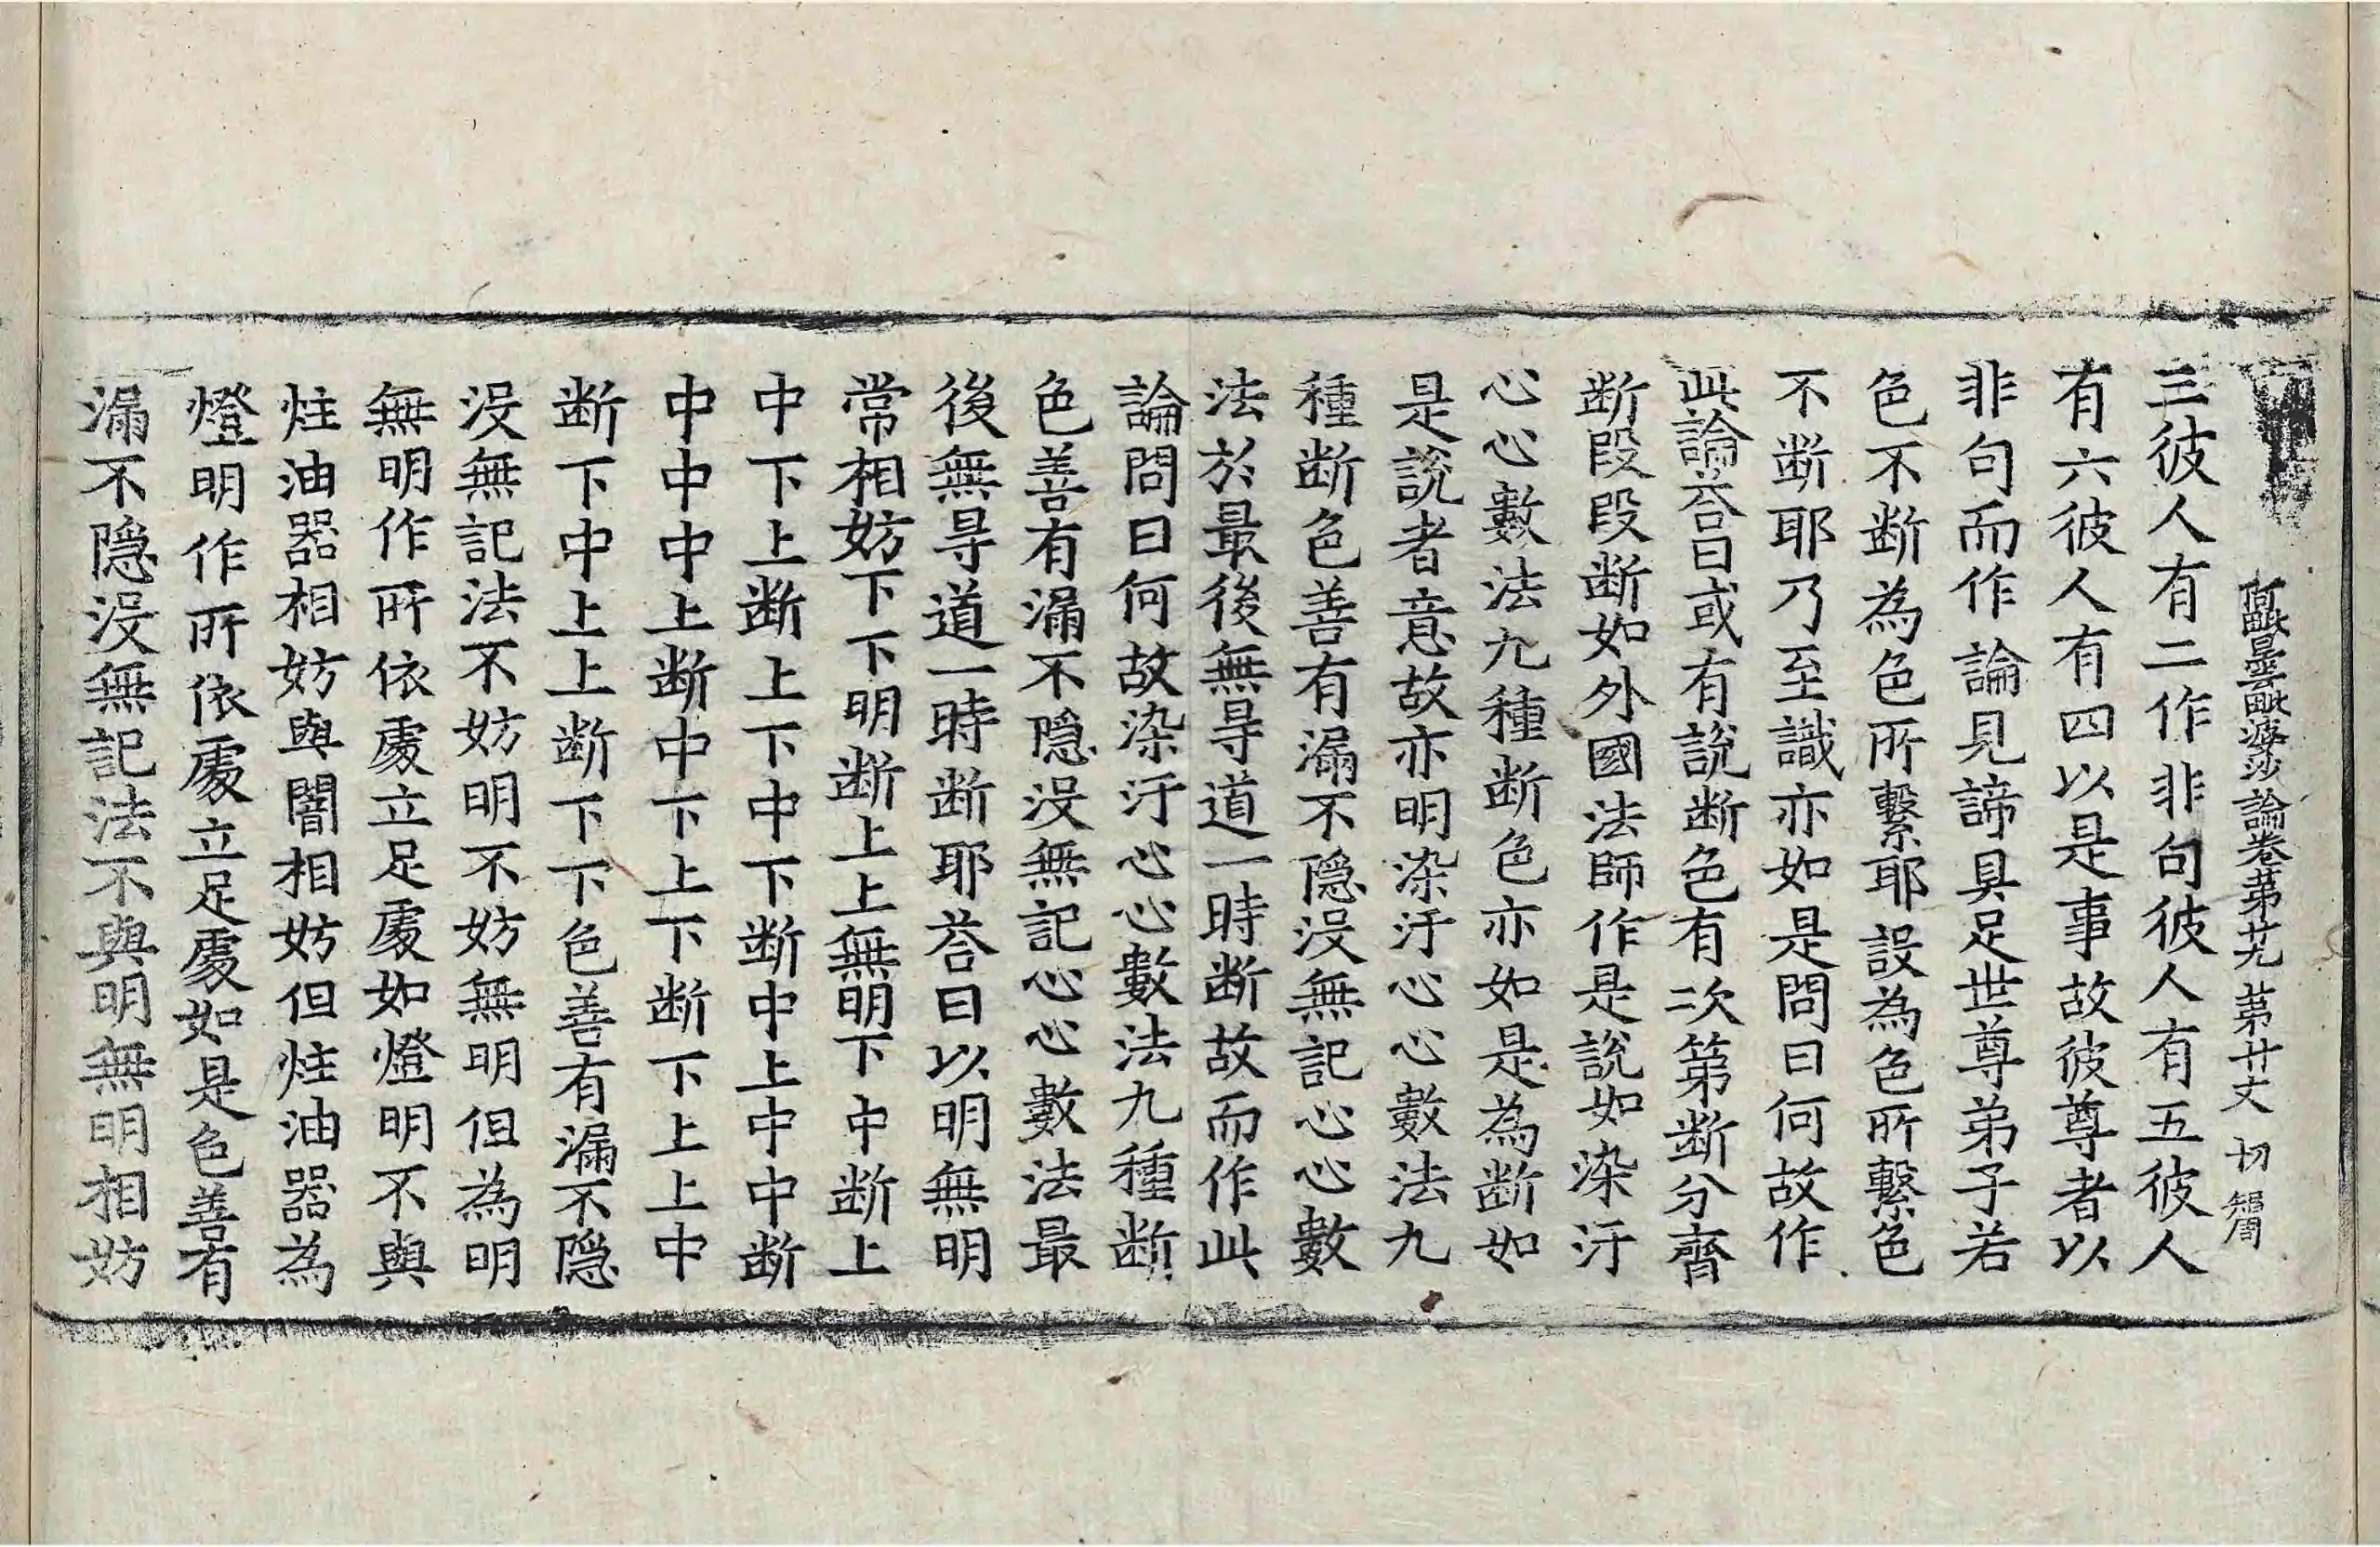 阿毗曇毗婆沙論卷第廿九 第廿丈 切 智
三彼人有二作非句彼人有五彼人
有六彼人有四以是事故彼尊者以
非句而作論見諦具足世尊弟子若
色不断為色所繫耶設為色所繫色
不断耶乃至識亦如是問曰何故作
此論荅曰或有說断色有次第断分齊
断段段断如外國法師作是說如染汙
心心數法九種断色亦如是為断如
是說者意故亦明染汙心心數法九
種断色善有漏不隠没無記心心數
法於最後無㝵道一時断故而作此
論問曰何故染汙心心數法九種断
色善有漏不隠没無記心心數法最
後無㝵道一時断耶荅曰以明無明
常相妨下下明断上上無明下中断上
中下上断上下中下断中上中中断
中中中上断中下上下断下上上中
断下中上上断下下色善有漏不隠
没無記法不妨明不妨無明但為明
無明作所依處立足處如燈明不與
炷油器相妨與闇相妨但炷油器為
燈明作所依處立足處如是色善有
漏不隠没無記法不與明無明相妨